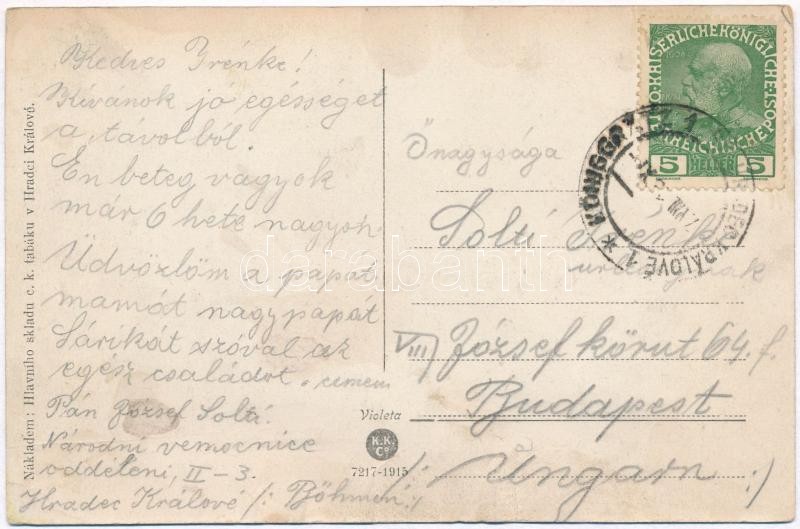 Kedves Irénke!
Kívánok jó egésséget
a távolból.
En beteg vagyok
már 6 hete nagyon.
Üdvözlöm a papát
mamát nagypapát
Sárikát szóval az
egész családot.
Pán József Solti
Národní vemocnice
odděleni, II-3.
Hradec Králové /: Böhmen :/
Nákladem: Hlavního skladu c. k. tabáku v Hradci Králové.
Violeta
K.K.
Co
7217-1915
KAISERLICHE KÖNIGLICHE
ÖSTERREICHISCHE POST
1908
5 HELLER 5
KÖNIGGRÄTZ 1
KRÁLOVÉ 1
Önagysága
Solti Irénke
urleánynak
VIII József körut 64. f.
Budapest
/: Ungarn :/
databanth